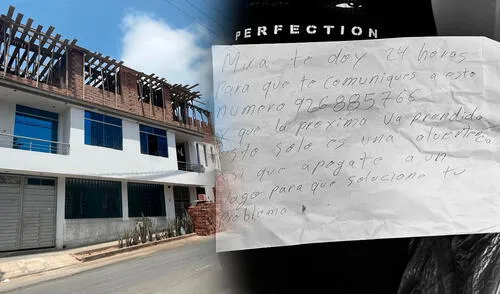 PERFECTION
Mira te doy 24 horas
para que te comuniques a este
numero 926885766
y que la proxima va prendido
esto solo es una alvertencia
asi que apegate a un
pago para que solucione tu
problema